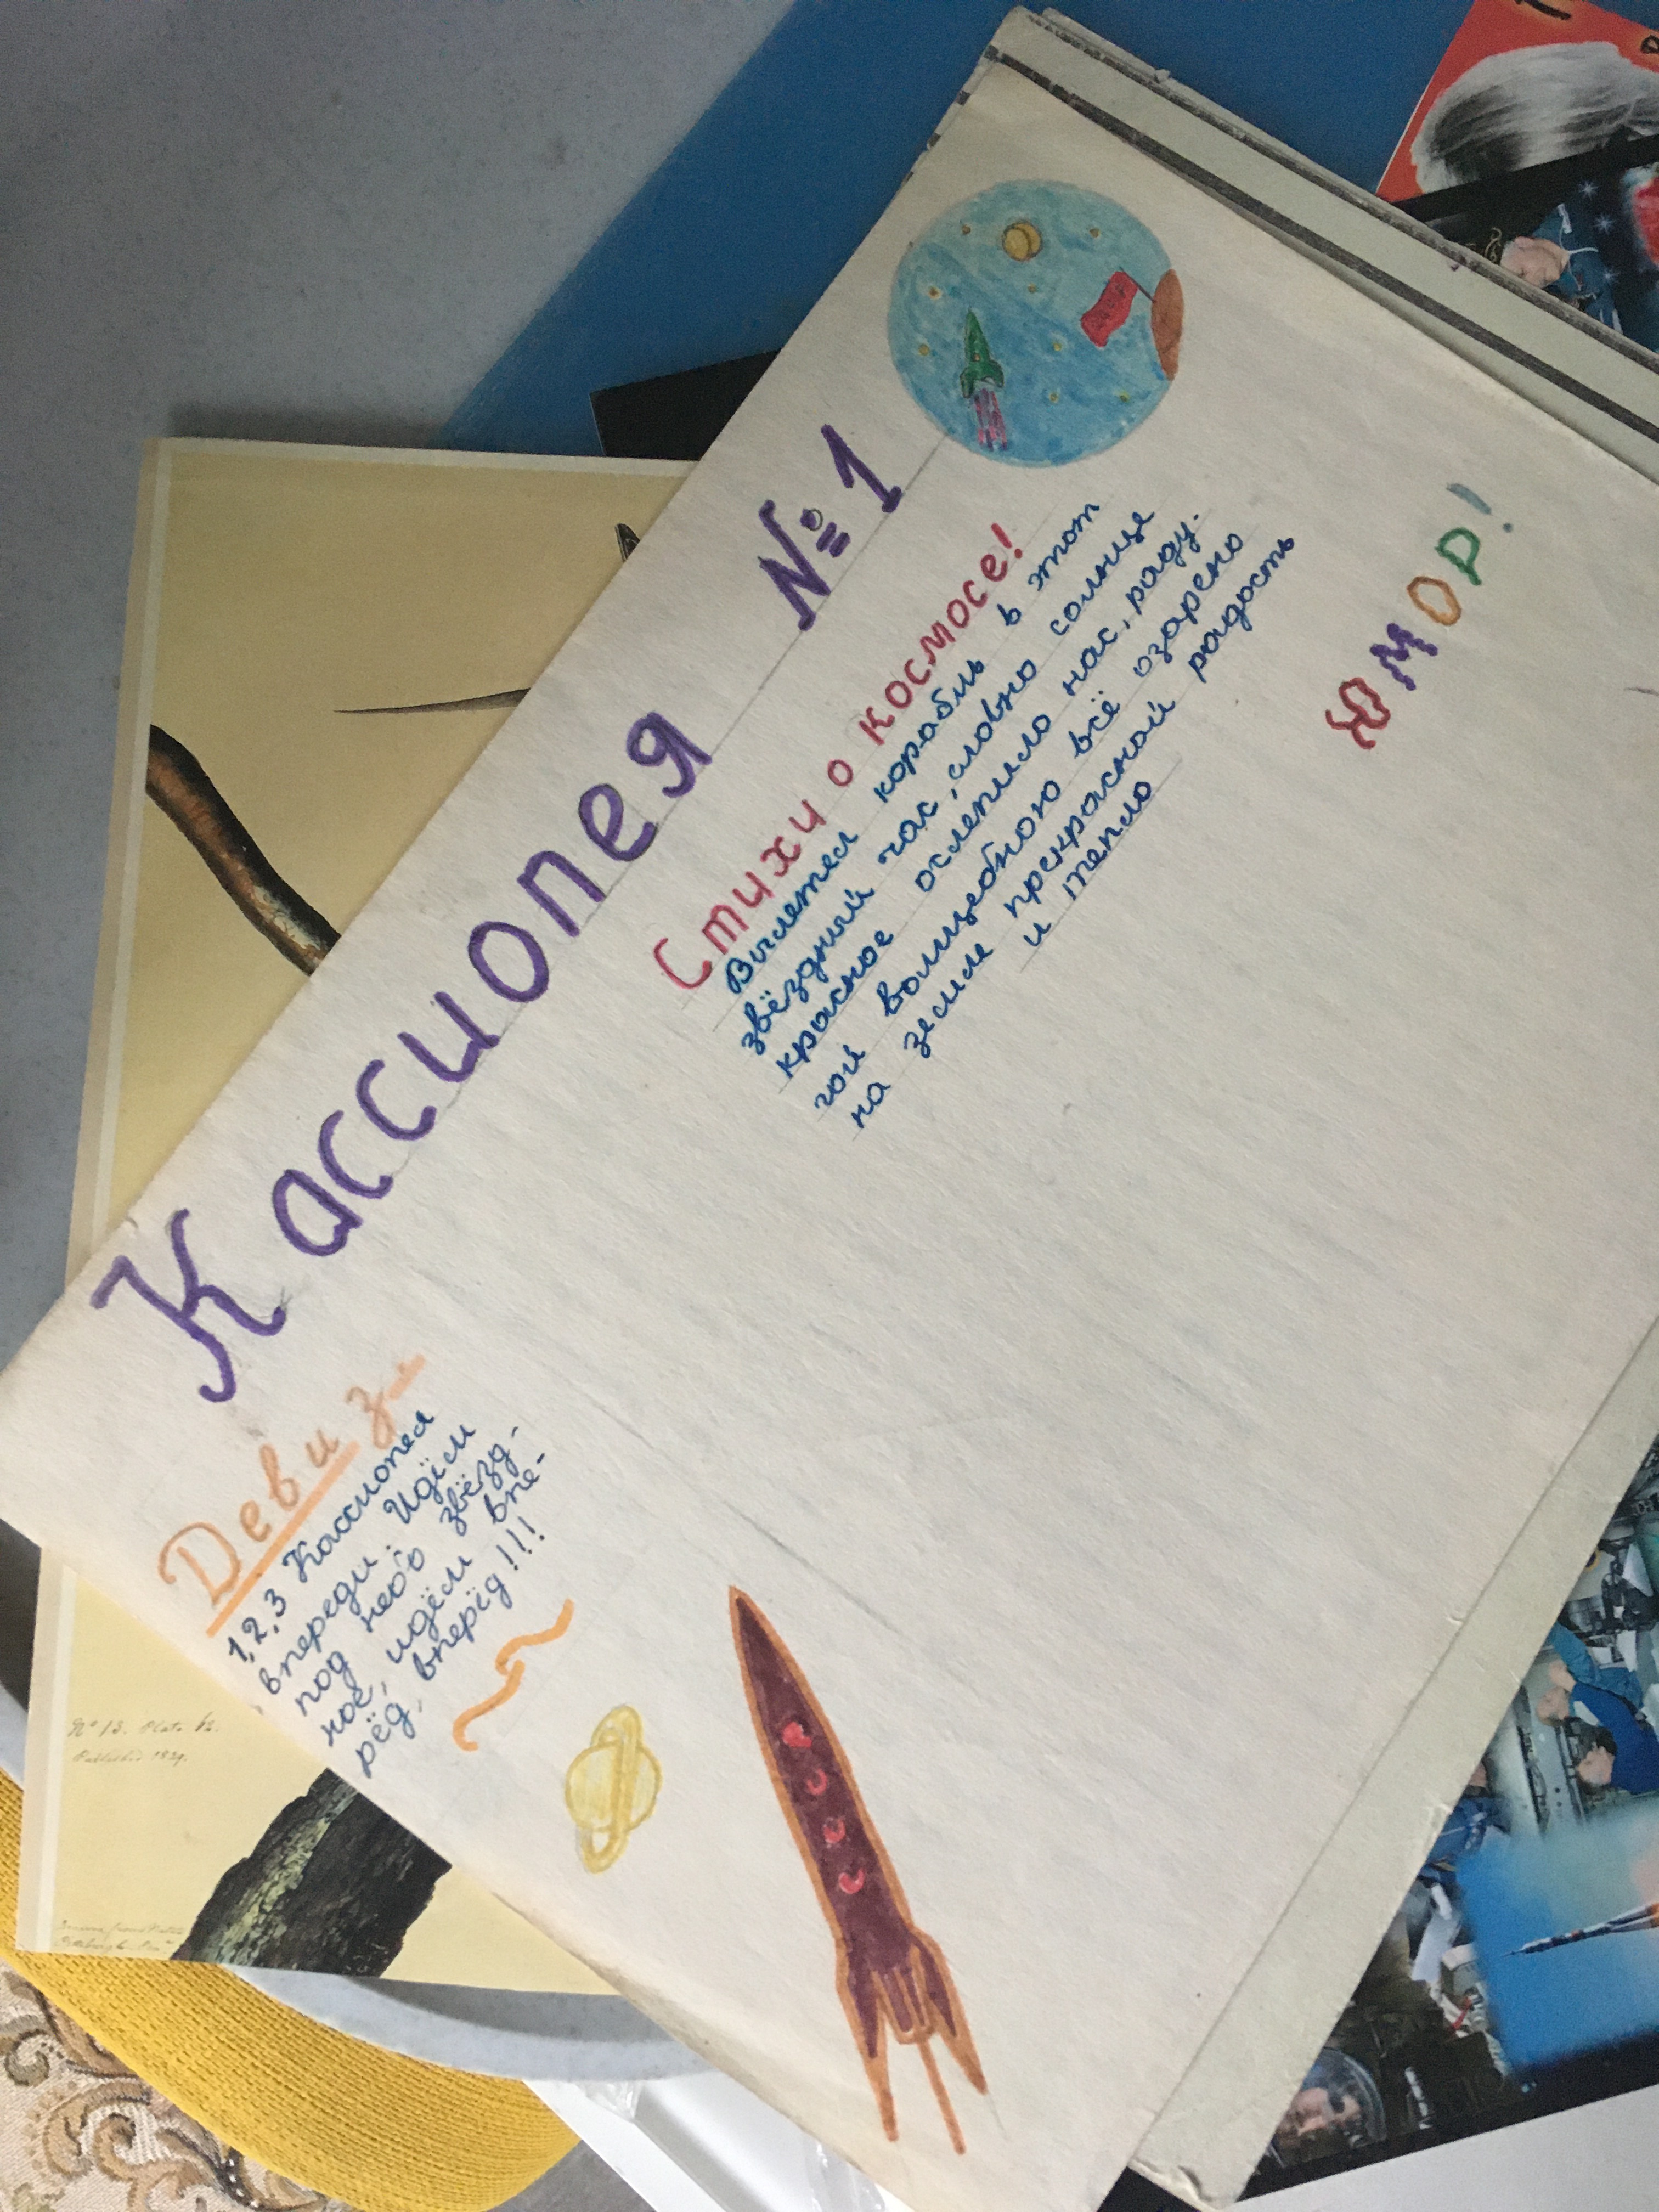 Кассиопея №1
Девиз
1,2,3 Кассиопея
впереди. Идём
под небо звёзд-
ное, идём впе-
рёд, вперёд!!!
Стихи о космосе!
Вылетел корабль в этот
звёздный час, словно солнце
красное ослепило нас, раду.
гой волшебною всё озарено
на земле прекрасной радость
и тепло
ЮМОР!
No 13. Plate 62.